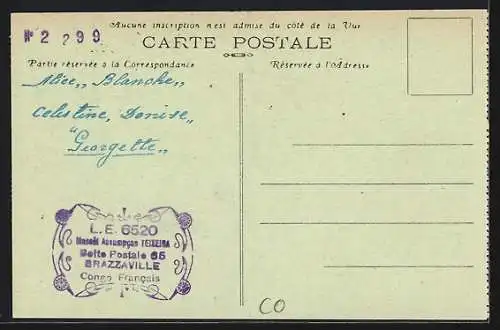 Aucune inscription n'est admise du côté de la Vue
N° 2 299
CARTE POSTALE
Partie réservée à la Correspondance
Réservée à l'Adresse
Alice„ Blanche„
Celestine, Denise„
"Georgette„
L.E. 6520
Manoël Assumpçao TEIXEIRA
Boite Postale 65
BRAZZAVILLE
Congo Français
CO